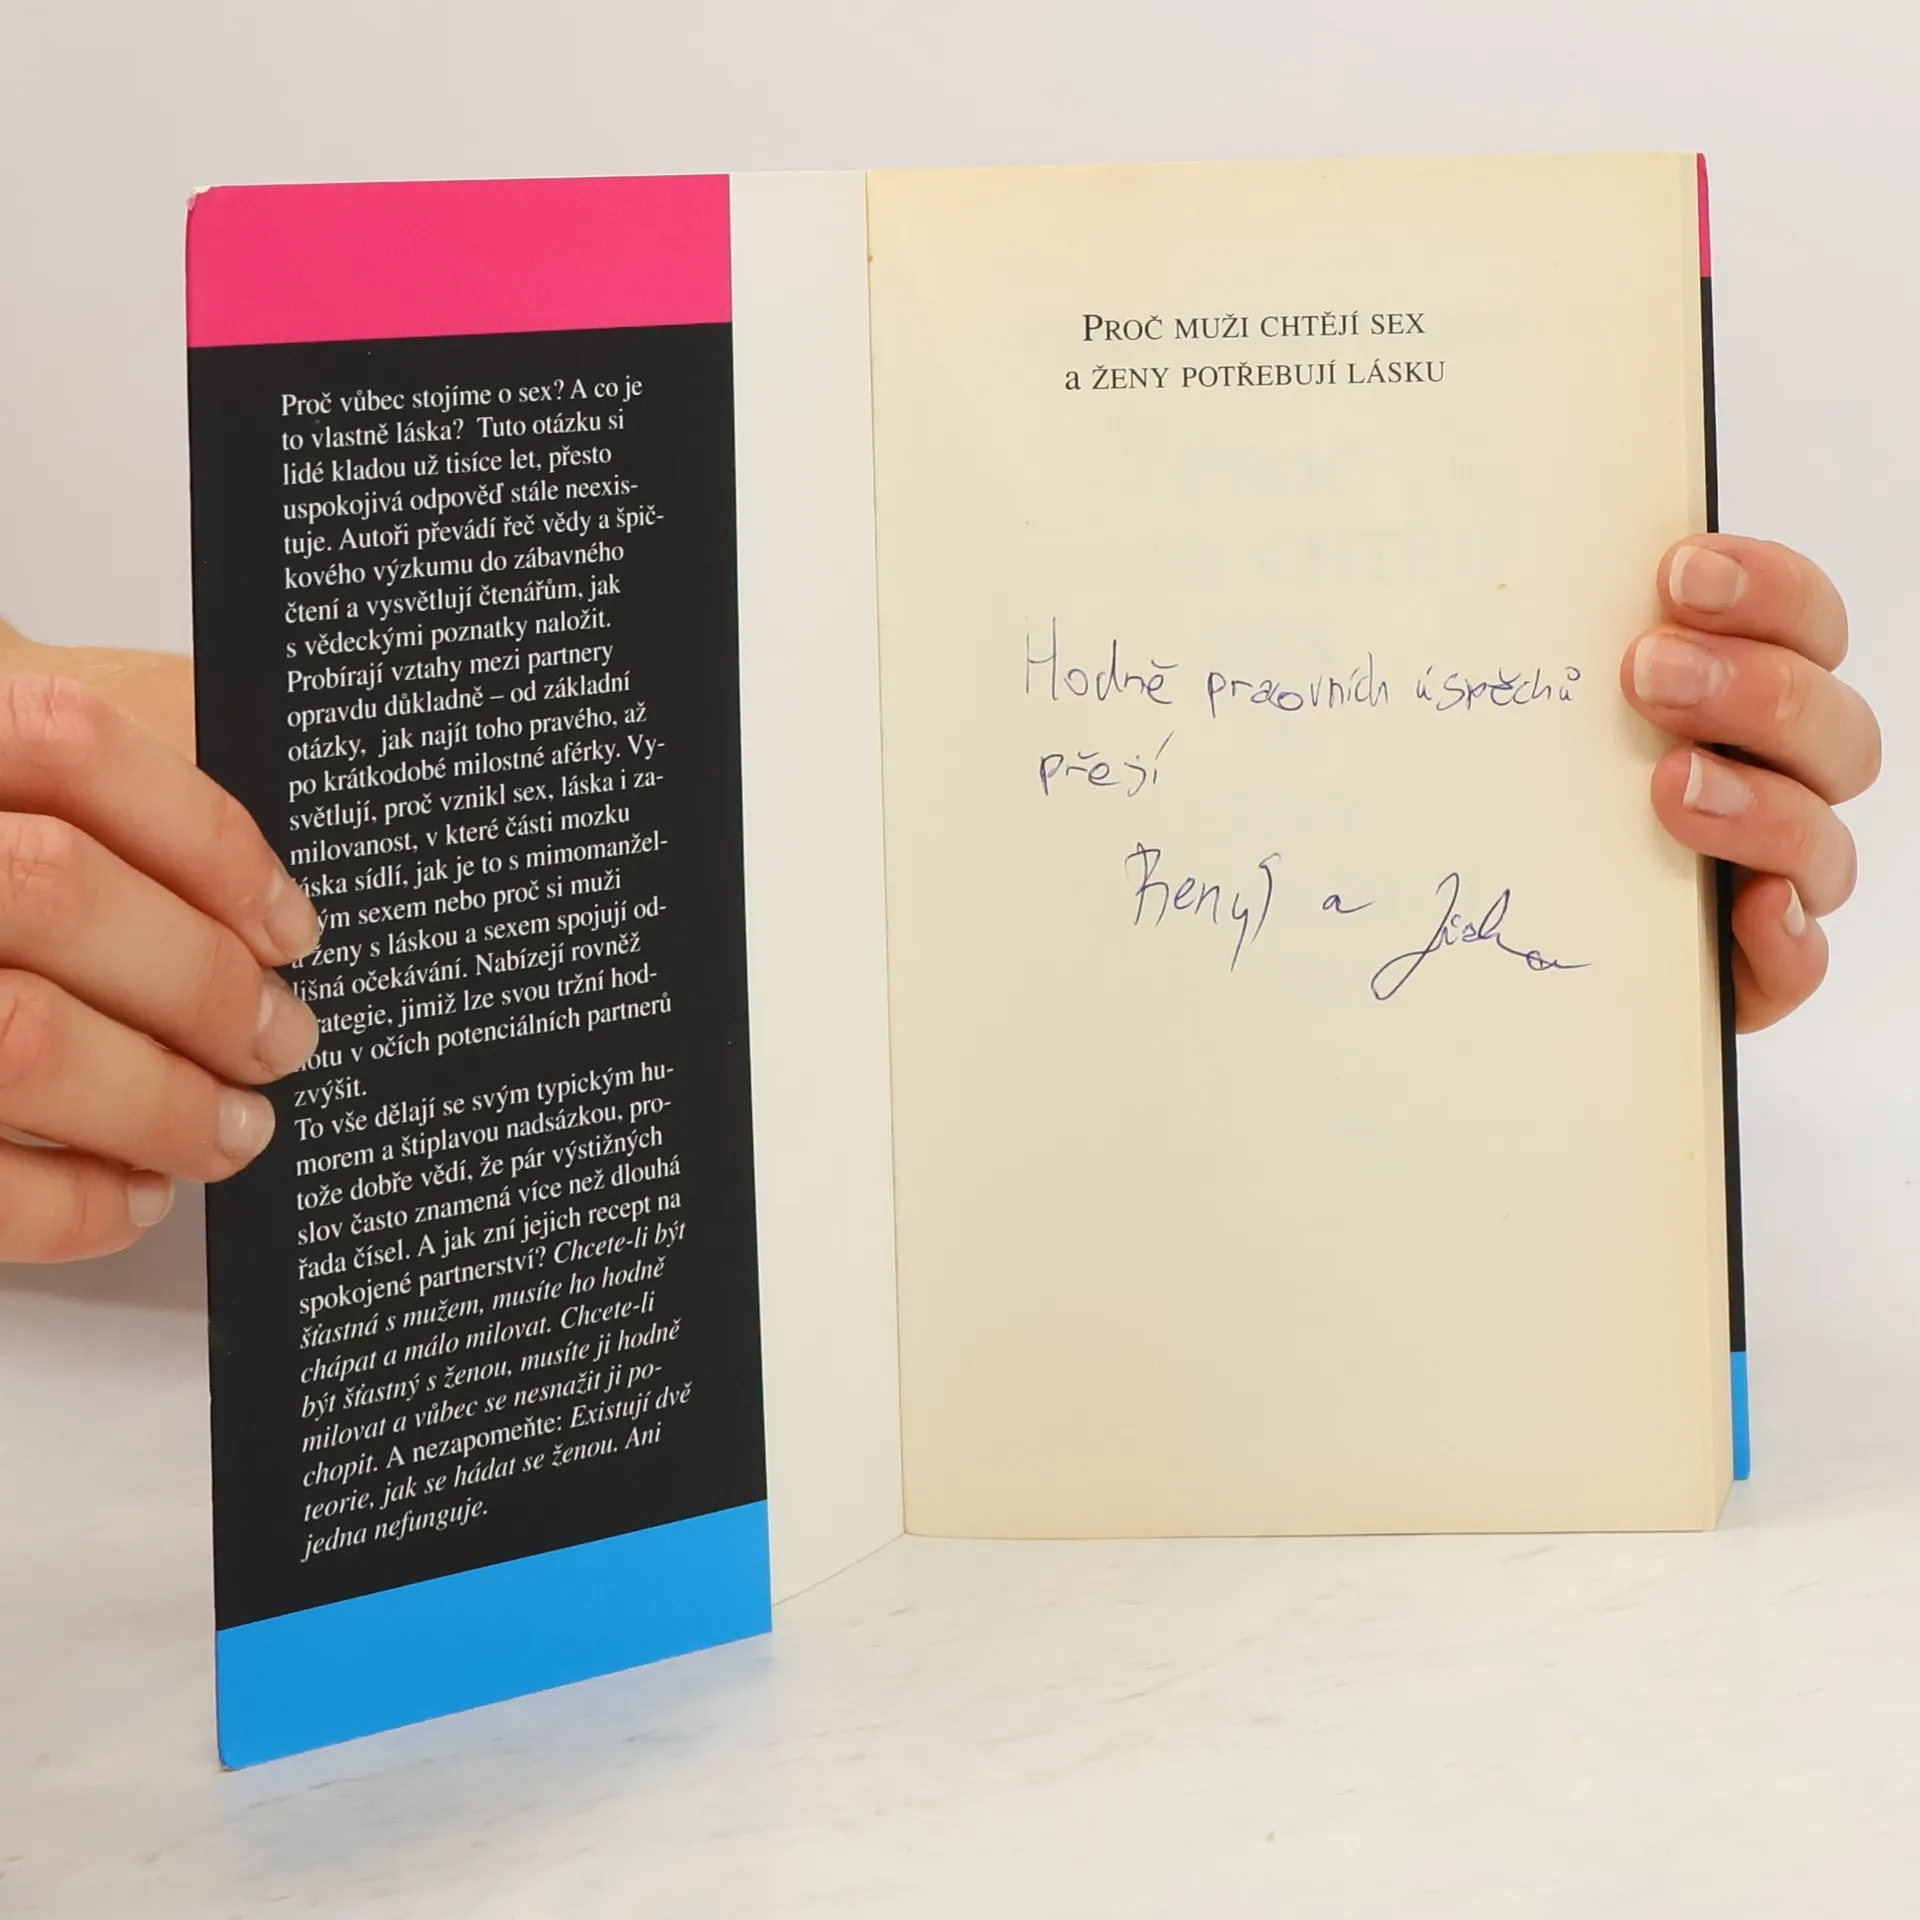 Proč vůbec stojíme o sex? A co je
to vlastně láska? Tuto otázku si
lidé kladou už tisíce let, přesto
uspokojivá odpověď stále neexis-
tuje. Autoři převádí řeč vědy a špič-
kového výzkumu do zábavného
čtení a vysvětlují čtenářům, jak
s vědeckými poznatky naložit.
Probírají vztahy mezi partnery
opravdu důkladně – od základní
otázky, jak najít toho pravého, až
po krátkodobé milostné aférky. Vy-
světlují, proč vznikl sex, láska i za-
milovanost, v které části mozku
áska sídlí, jak je to s mimomanžel-
ým sexem nebo proč si muži
a ženy s láskou a sexem spojují od-
lišná očekávání. Nabízejí rovněž
rategie, jimiž lze svou tržní hod-
notu v očích potenciálních partnerů
zvýšit.
To vše dělají se svým typickým hu-
morem a štiplavou nadsázkou, pro-
tože dobře vědí, že pár výstižných
slov často znamená více než dlouhá
řada čísel. A jak zní jejich recept na
spokojené partnerství? Chcete-li být
šťastná s mužem, musíte ho hodně
chápat a málo milovat. Chcete-li
být šťastný s ženou, musíte ji hodně
milovat a vůbec se nesnažit ji po-
chopit. A nezapomeňte: Existují dvě
teorie, jak se hádat se ženou. Ani
jedna nefunguje.
PROČ MUŽI CHTĚJÍ SEX
a ŽENY POTŘEBUJÍ LÁSKU
Hodně pracovních úspěchů
přejí
a